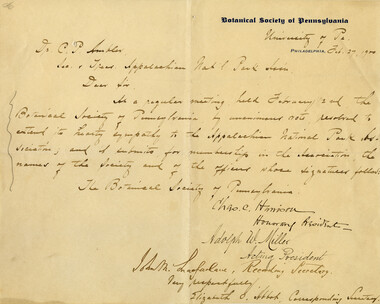 Botanical Society of Pennsylvania
University of Pa.
PHILADELPHIA, Feb. 27, 1900
Dr. C. P. Ambler
Sec. & Treas. Appalachian Nat'l Park Assn
Dear Sir
At a regular meeting held February 2nd the
Botanical Society of Pennsylvania by unanimous vote resolved to
extend its hearty sympathy to the Appalachian National Park As-
sociation, and I submit, for membership in the Association, the
names of the Society and of the officers whose signatures follow.
The Botanical Society of Pennsylvania
Chas. C. Harrison
Honorary President
Adolph W. Miller
Acting President
John M. Macfarlane, Recording Secretary
Very respectfully
Elizabeth S. Abbot Corresponding Secretary